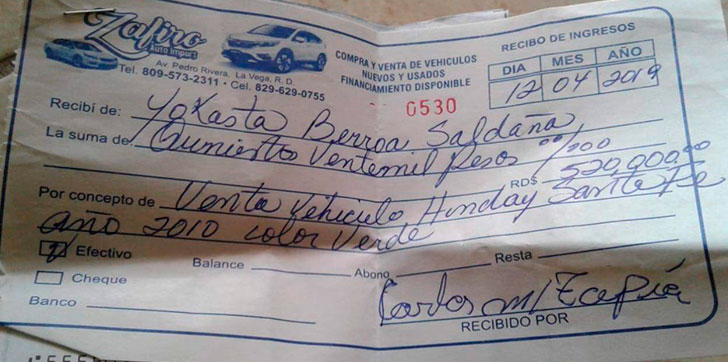 Zafiro
Auto Import
Av. Pedro Rivera, La Vega, R. D.
Tel. 809-573-2311 • Cel. 829-629-0755
COMPRA Y VENTA DE VEHICULOS
NUEVOS Y USADOS
FINANCIAMIENTO DISPONIBLE
0530
RECIBO DE INGRESOS
DIA MES AÑO
12 04 2019
Recibí de: Yokasta Berroa Saldaña
La suma de: Quiniento Ventemil Pesos 00/100
RD$ 520,000.00
Por concepto de Venta Vehiculo Hunday Santa Fe
año 2010 color Verde
Efectivo Balance Abono Resta
Cheque
Banco
Carlos M/ Tapia
RECIBIDO POR